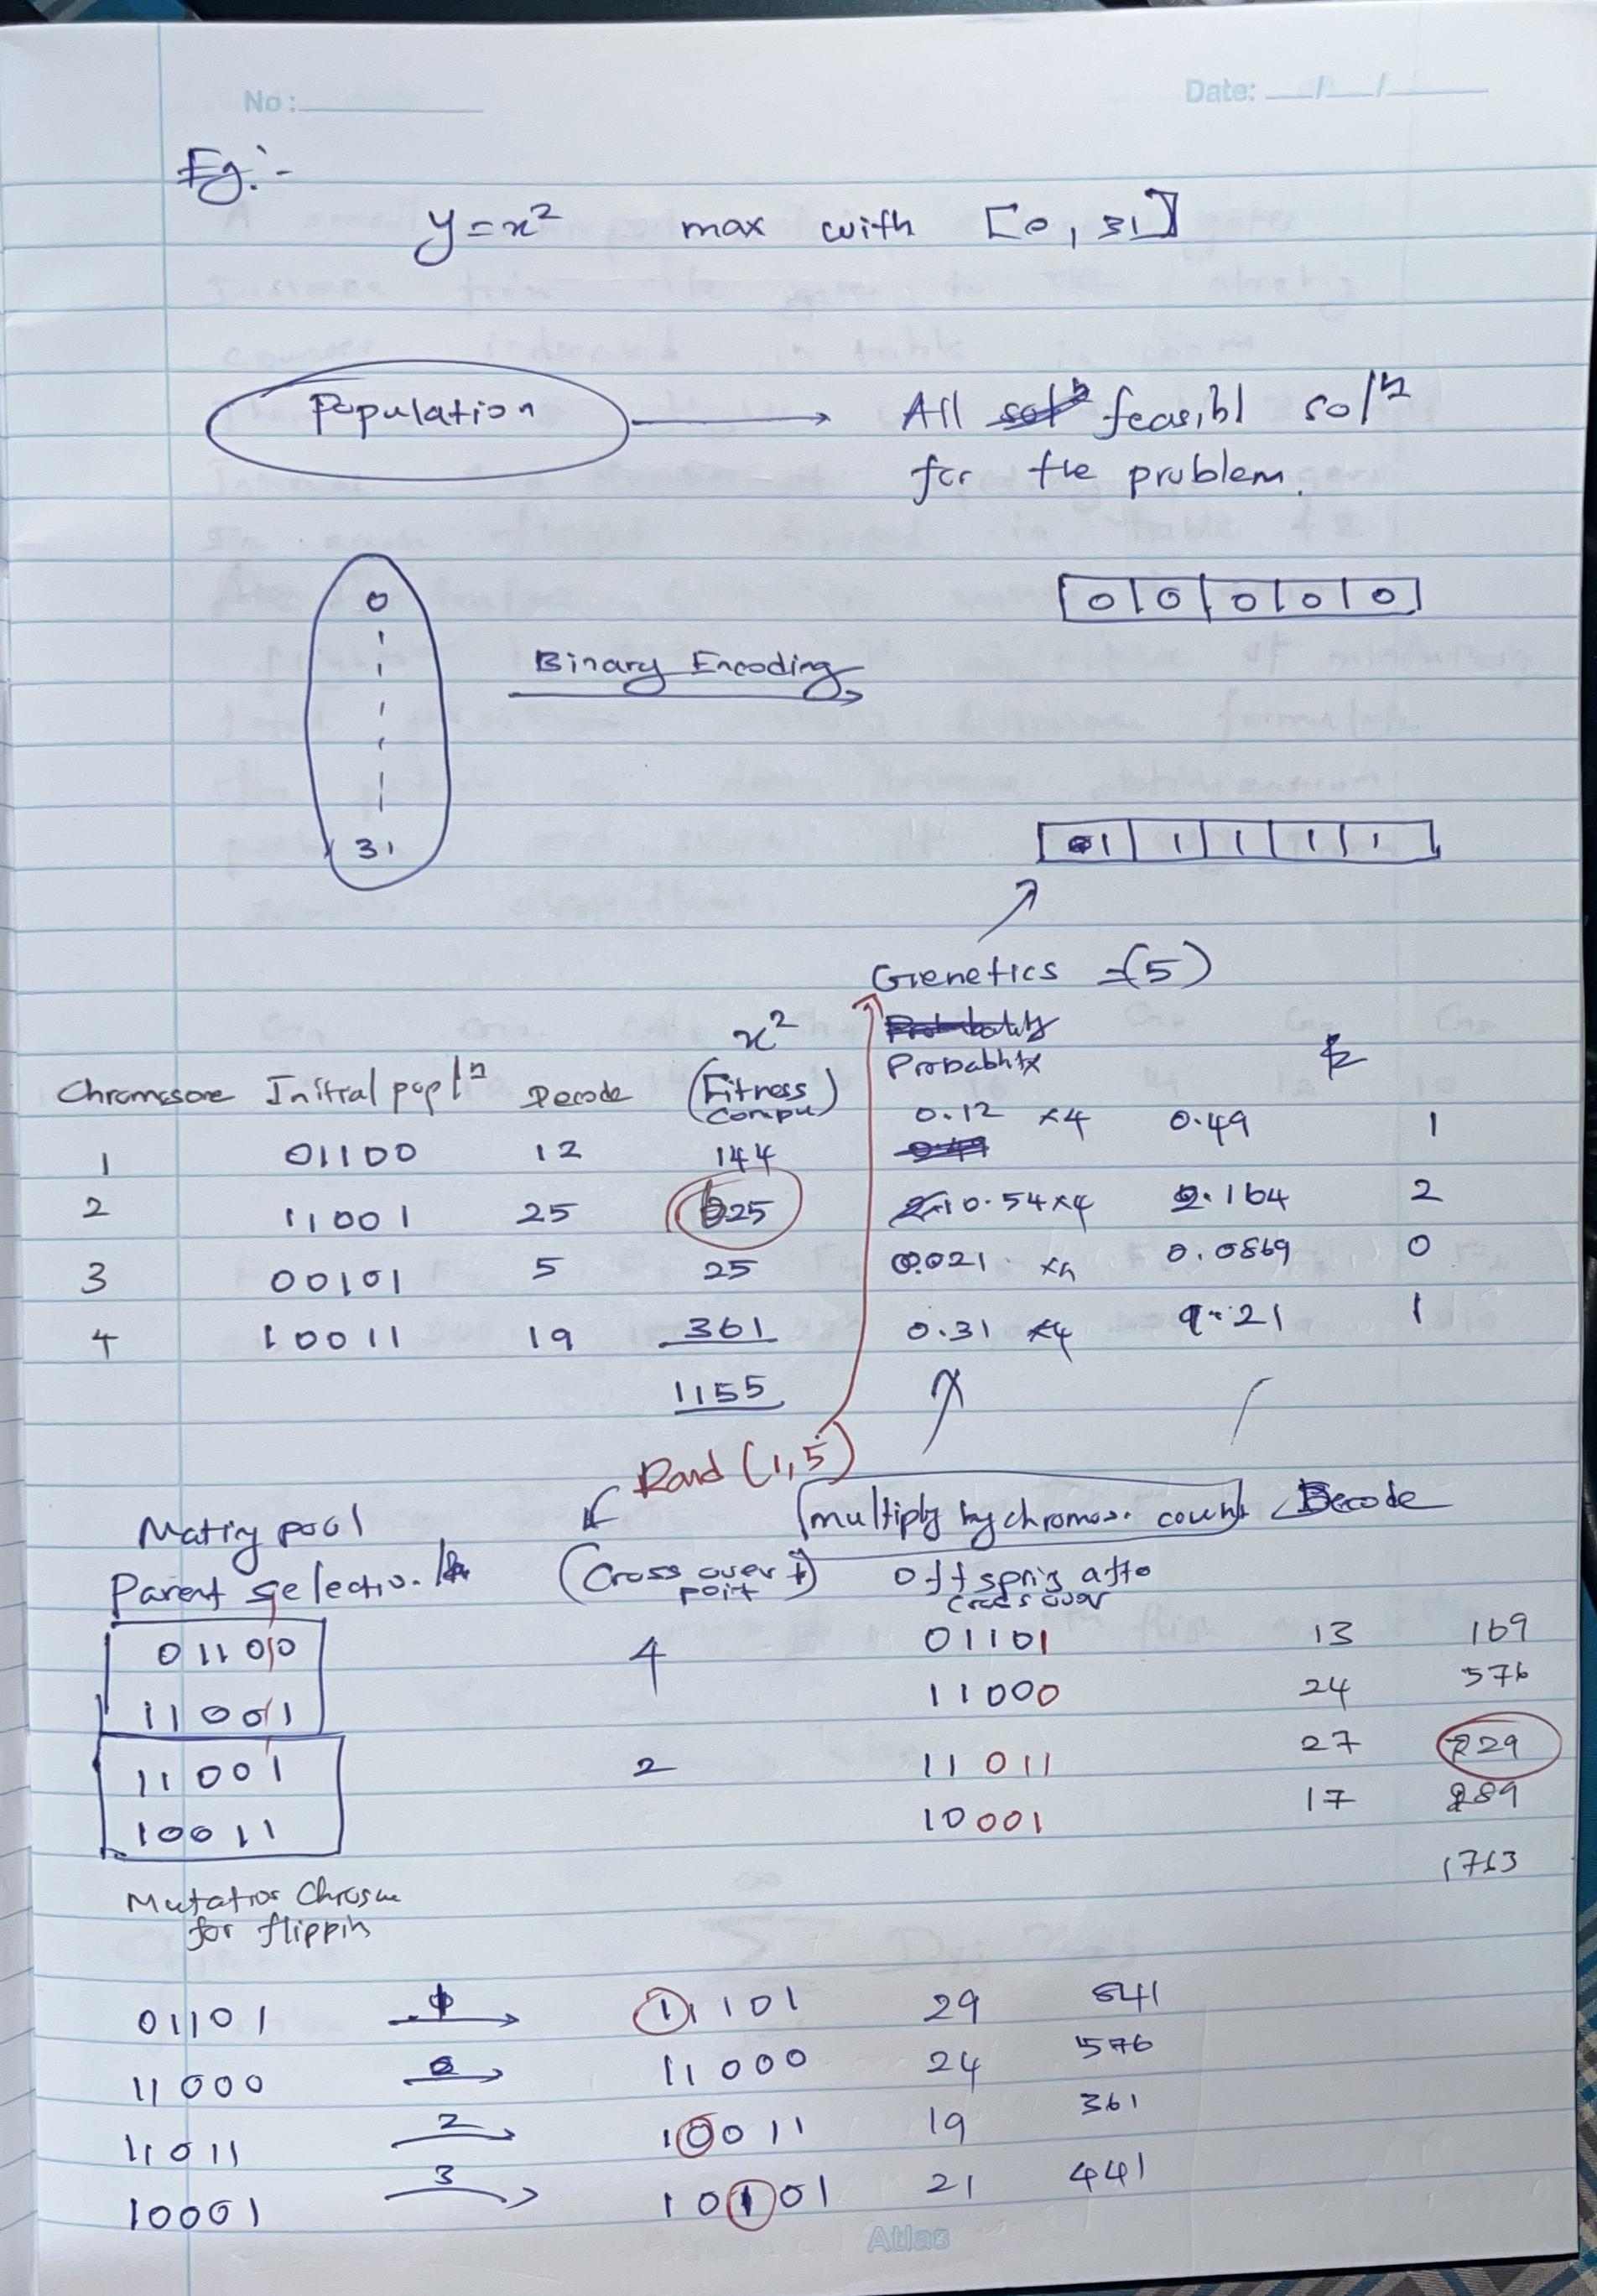 No:
Date: __/__/__
Eg:-
y = x² max with [0, 31]
Population → All feasibl solⁿ
for the problem.
0
31
Binary Encoding
0 0 0 0 0
1 1 1 1 1
Genetics = (5)
x²
Chromosome Initial poplⁿ Decode (Fitness compu) Probability
1 01100 12 144 0.12 ×4 0.49 1
2 11001 25 625 0.54 ×4 2.164 2
3 00101 5 25 0.021 ×4 0.0869 0
4 10011 19 361 0.31 ×4 1.21 1
1155
Rand (1,5)
multiply by chromos. count
Mating pool
Parent selectio.
(Cross over poit)
Offsprig afte cross over
Decode
01100 4 01101 13 169
11001 11000 24 576
11001 2 11011 27 729
10011 10001 17 289
1763
Mutatios Chrosm
for flippin
01101 1 → 11101 29 841
11000 0 → 11000 24 576
11011 2 → 10011 19 361
10001 3 → 10101 21 441
Atlas